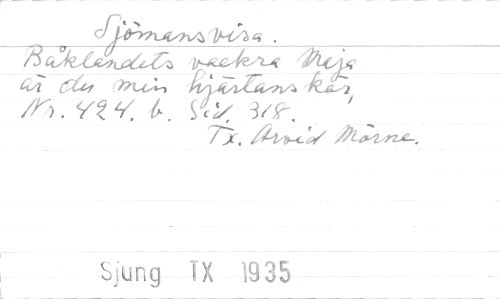 Sjömansvisa.
Båklandets vackra Maja
är du min hjärtanskär,
Nr. 424. b. Sid. 318.
Tx. Arvid Mörne.
Sjung TX 1935